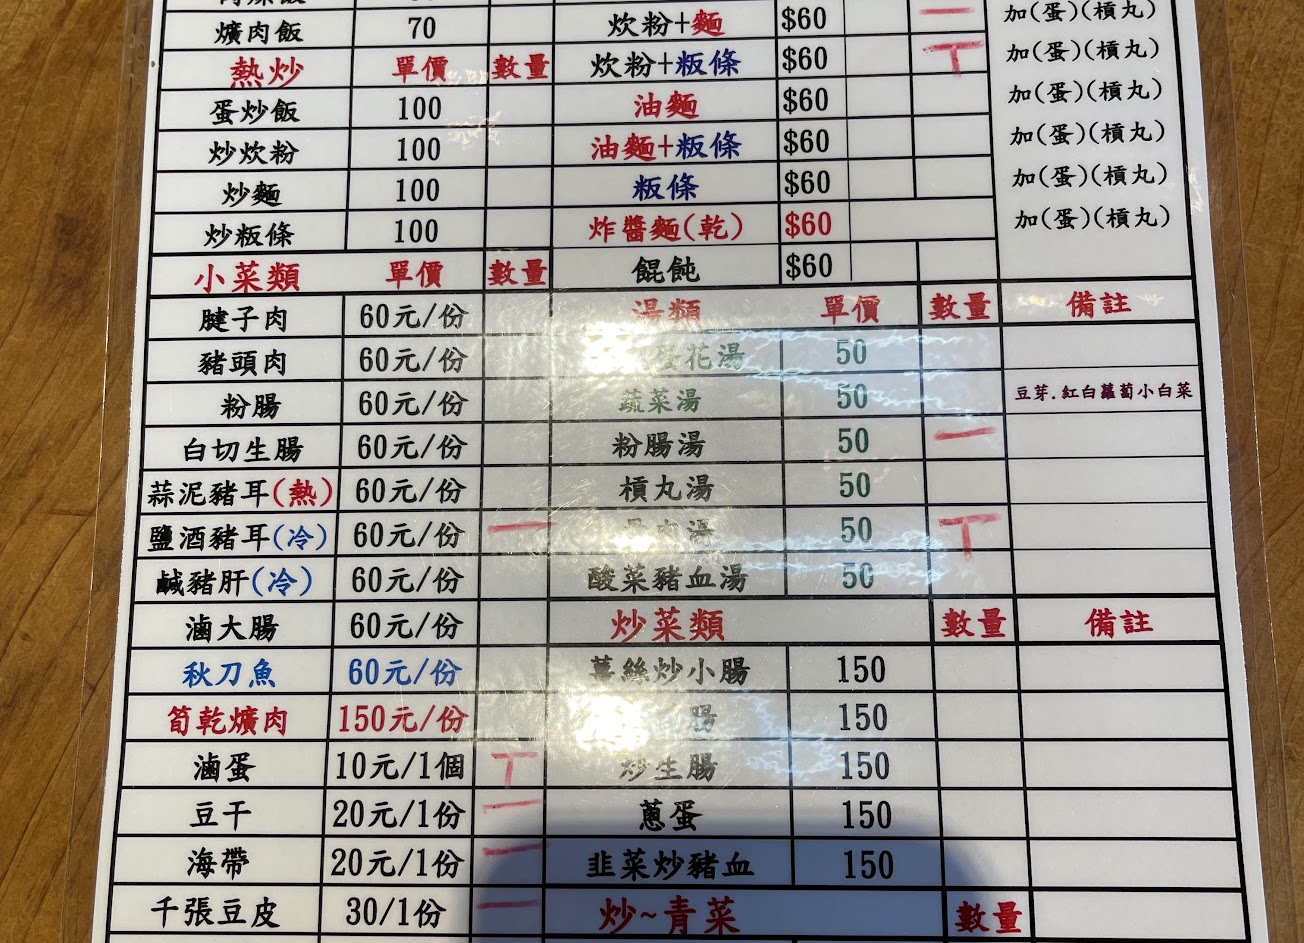 爌肉飯 70 炊粉+麵 $60 一 加(蛋)(槓丸)
熱炒 單價 數量 炊粉+粄條 $60 丅 加(蛋)(槓丸)
蛋炒飯 100 油麵 $60 加(蛋)(槓丸)
炒炊粉 100 油麵+粄條 $60 加(蛋)(槓丸)
炒麵 100 粄條 $60 加(蛋)(槓丸)
炒粄條 100 炸醬麵(乾) $60 加(蛋)(槓丸)
小菜類 單價 數量 餛飩 $60
腱子肉 60元/份 湯類 單價 數量 備註
豬頭肉 60元/份 花湯 50
粉腸 60元/份 蔬菜湯 50 豆芽.紅白蘿蔔小白菜
白切生腸 60元/份 粉腸湯 50 一
蒜泥豬耳(熱) 60元/份 槓丸湯 50
鹽酒豬耳(冷) 60元/份 一 肉湯 50 丅
鹹豬肝(冷) 60元/份 酸菜豬血湯 50
滷大腸 60元/份 炒菜類 數量 備註
秋刀魚 60元/份 薑絲炒小腸 150
筍乾爌肉 150元/份 腸 150
滷蛋 10元/1個 丅 炒生腸 150
豆干 20元/1份 一 蔥蛋 150
海帶 20元/1份 一 韭菜炒豬血 150
千張豆皮 30/1份 一 炒~青菜 數量